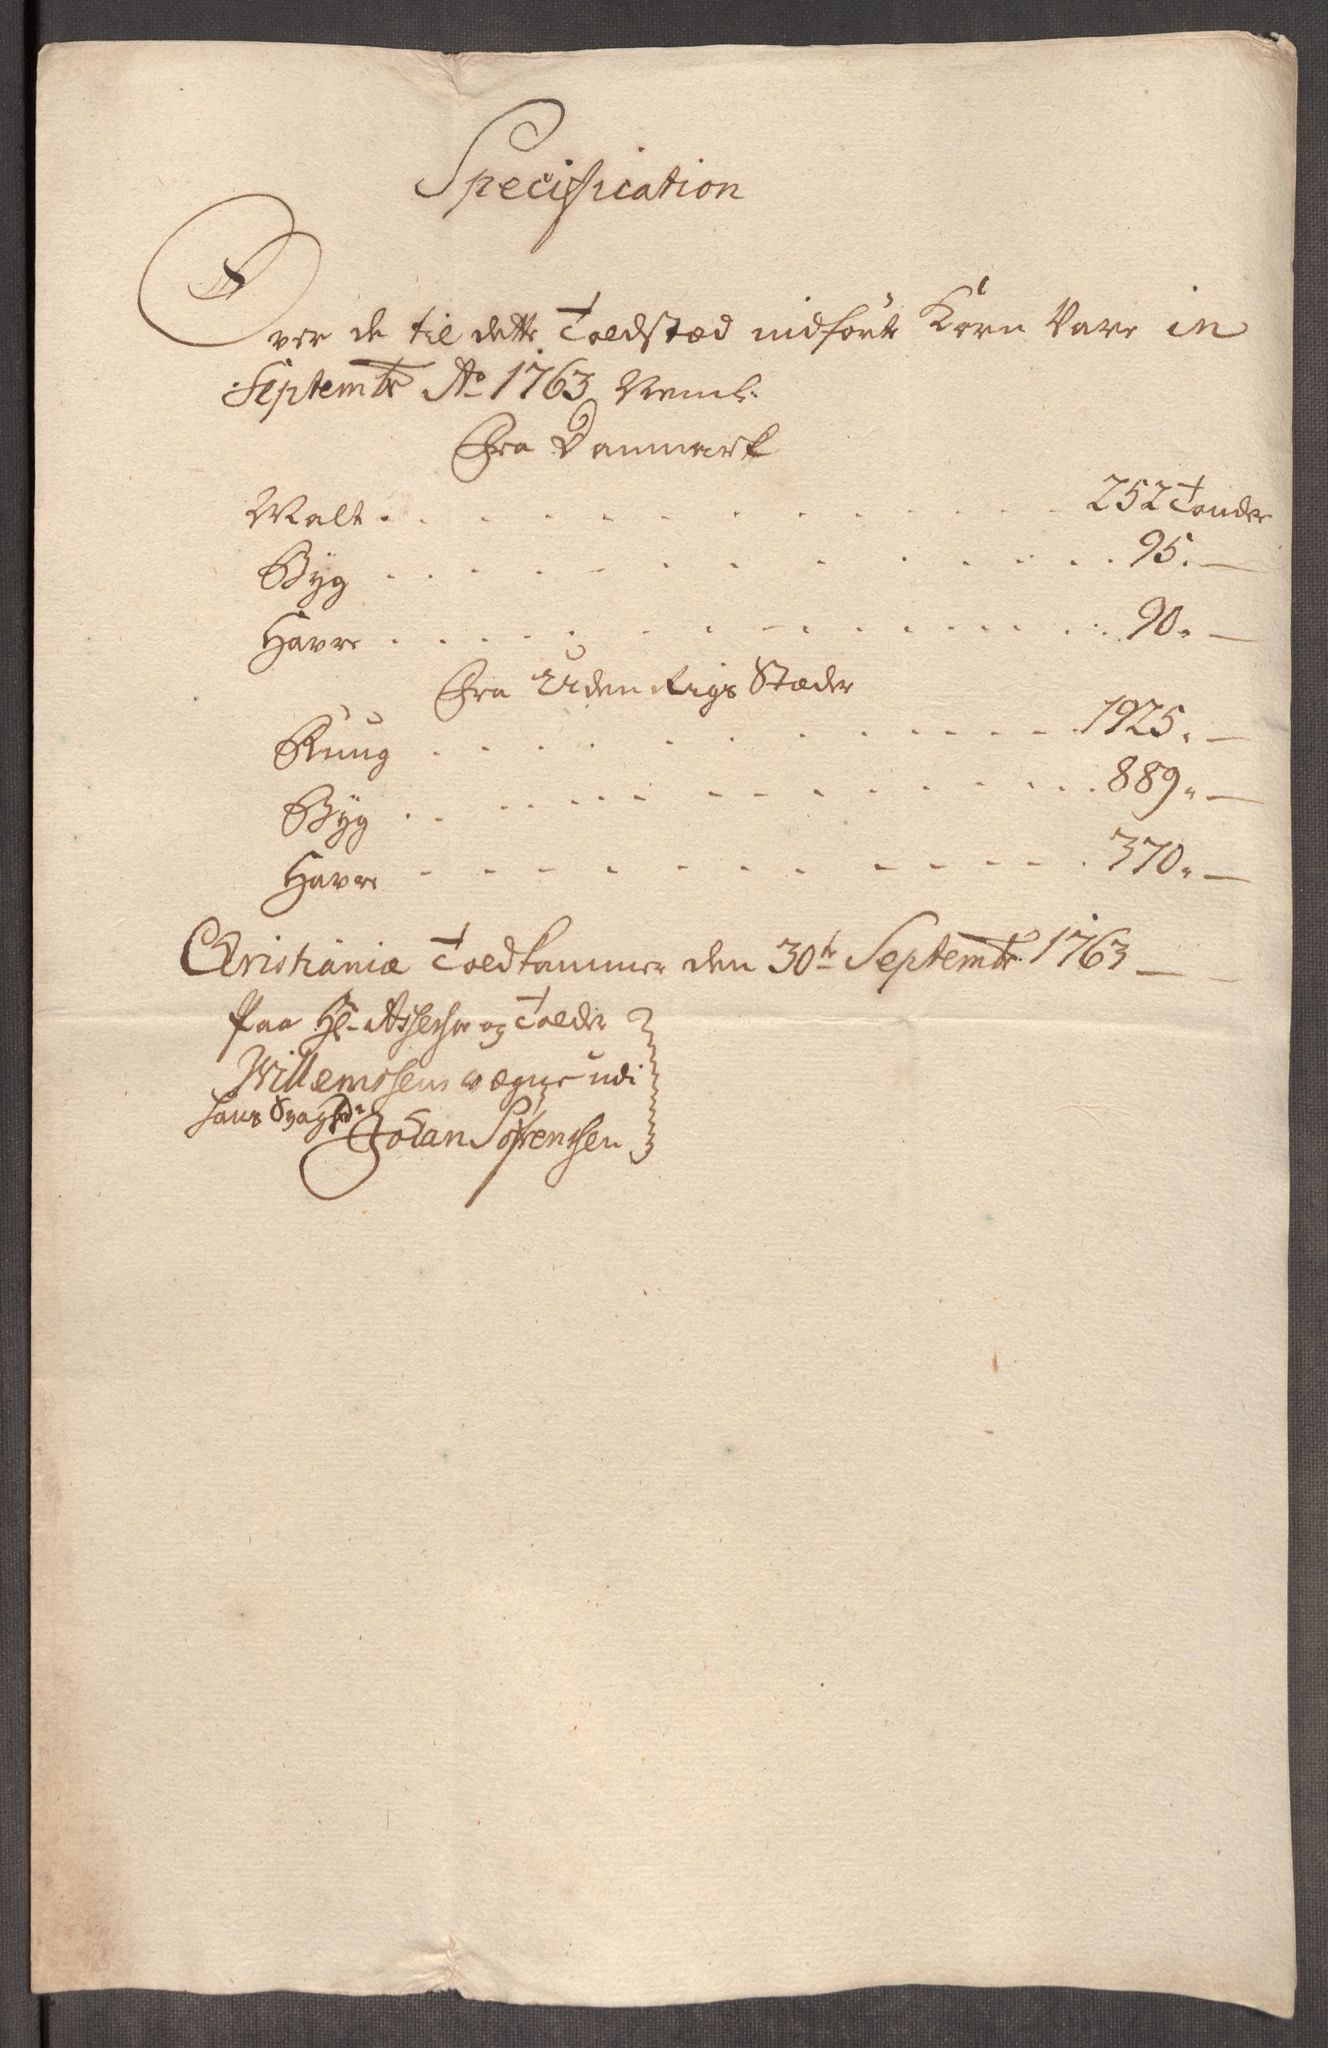 Specification
Over de til dette Toldstæd indførte Korn Vare in
Septembr Ao 1763 Neml:
Fra Danmark
Malt . . . . . . . . . . . . 252 Tønder
Byg . . . . . . . . . . . . 95. —
Havre . . . . . . . . . . . . 90. —
Fra Uden Rigs Stæder
Ruug . . . . . . . . . . . . 1925. —
Byg . . . . . . . . . . . . 889. —
Havre . . . . . . . . . . . . 370. —
Christianiæ Toldkammer den 30te Septembr 1763
Paa Hr Assessor og Tolder
Willemsens vægne udi
hans Svaghed
Johan Sørensen